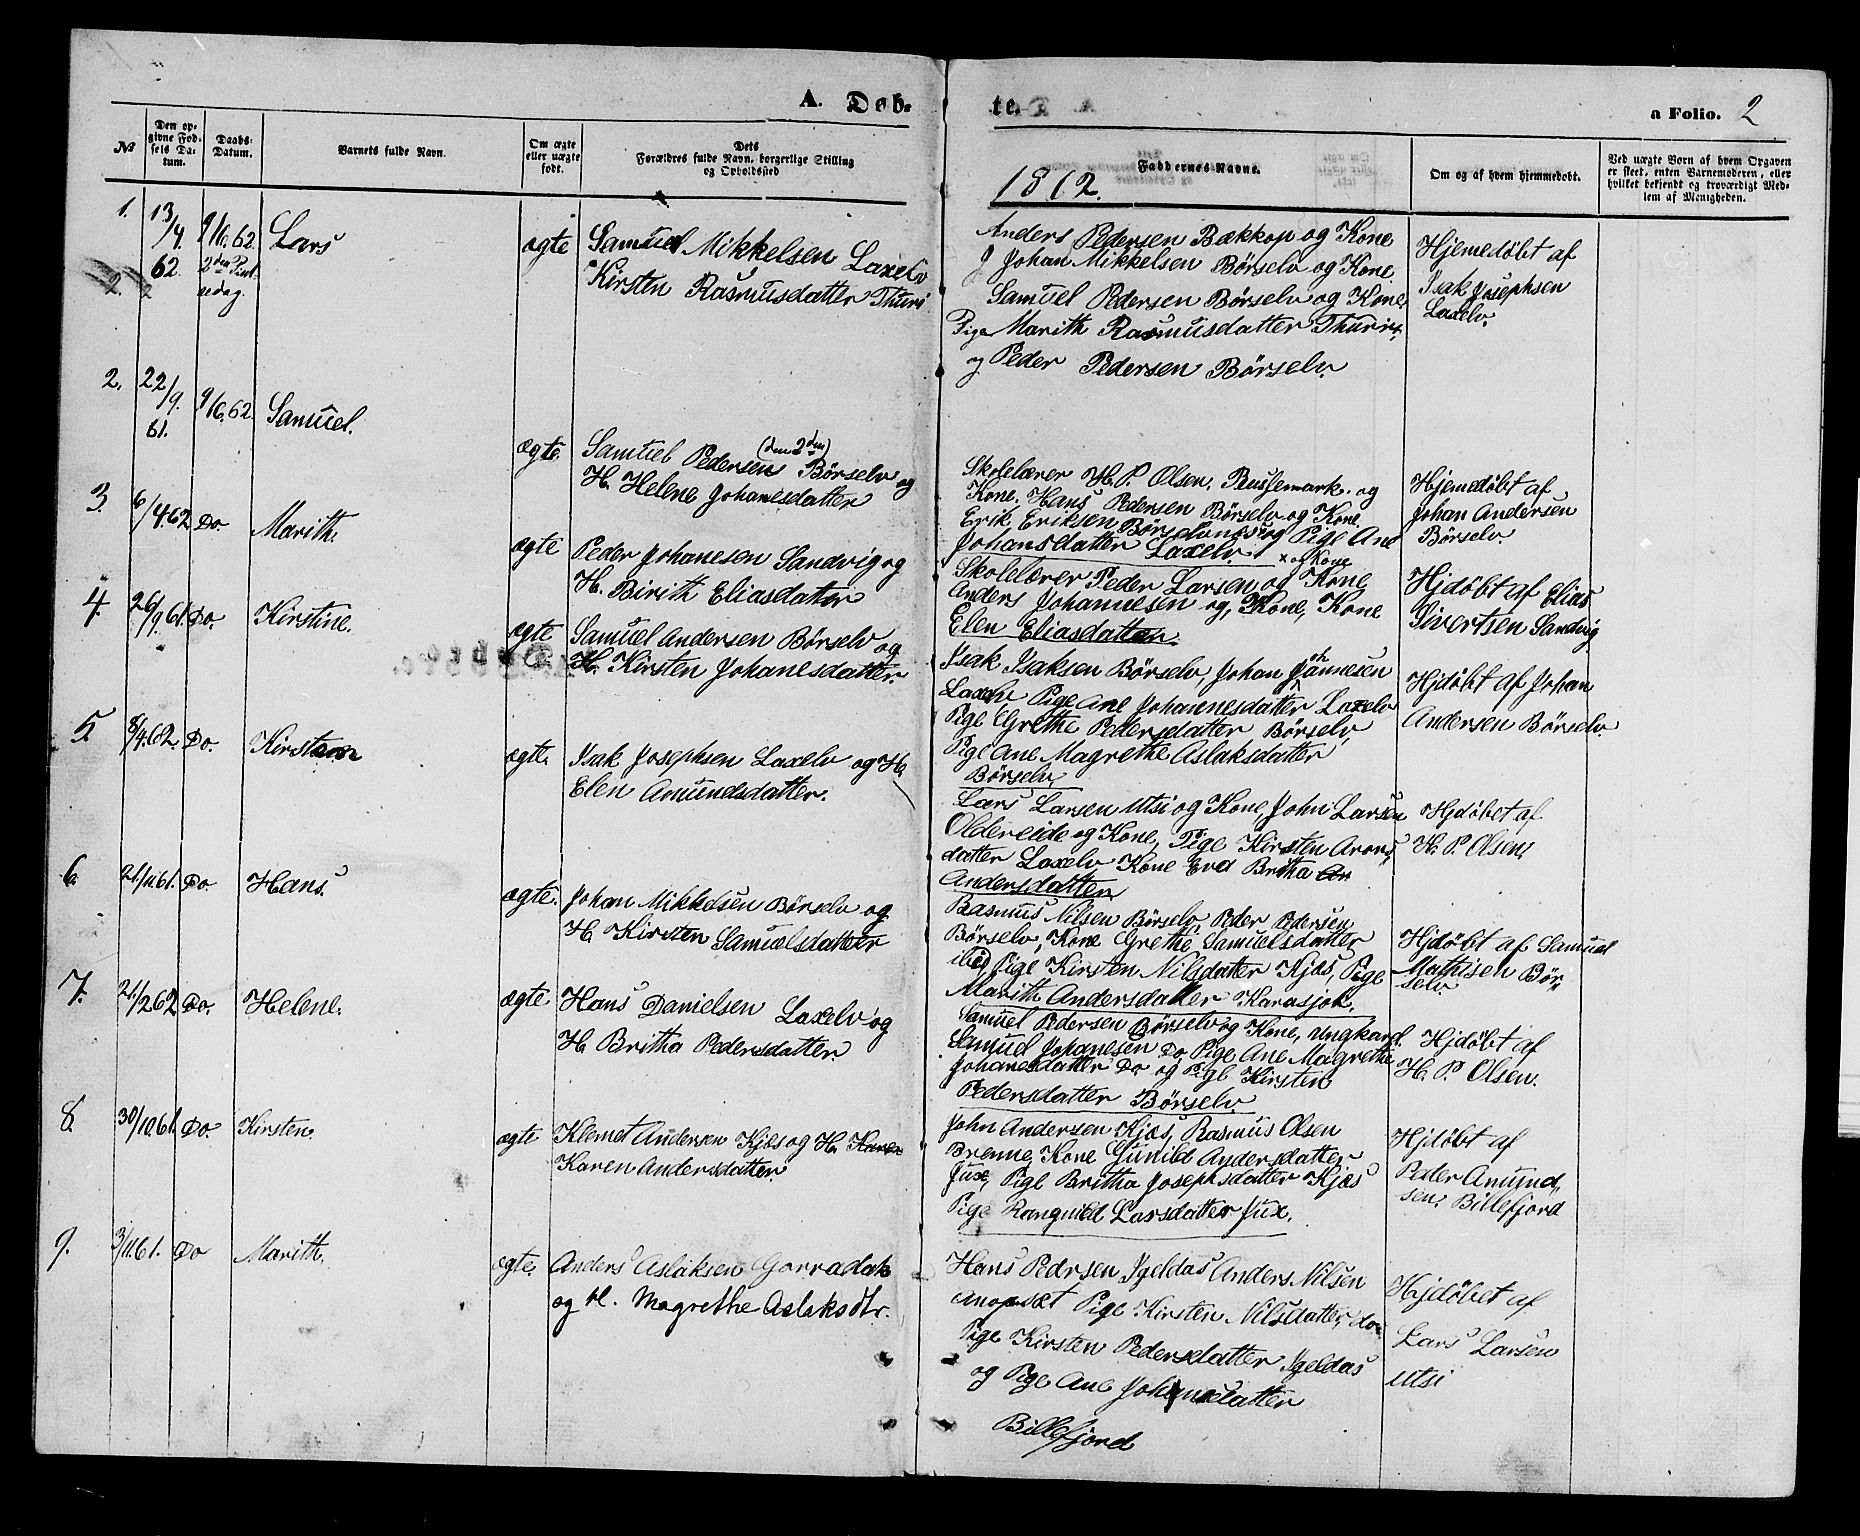 A. Døb-
te.
a Folio. 2
№
Den op-
givne Fød-
sels Da-
tum.
Daabs-
Datum.
Barnets fulde Navn.
Om ægte
eller uægte
født.
Dets
Forældres fulde Navn, borgerlige Stilling
og Opholdssted
Faddernes Navne.
1862.
Om og af hvem hjemmedøbt.
Ved uægte Børn af hvem Opgaven
er skeet, enten Barnemoderen, eller
hvilket bekjendt og troværdigt Med-
lem af Menigheden.
1.
13/4
62.
9/6.62.
2den Pint
sedag.
Lars
ægte
Samuel Mikkelsen Laxelv
Kirsten Rasmusdatter Thuri
Anders Pedersen Bækkop og Kone
Johan Mikkelsen Börselv og Kone
Samuel Pedersen Börselv og Kone,
Pige Marith Rasmusdatter Thuri
og Peder Pedersen Börselv.
Hjemedöbt af
Isak Josephsen
Laxelv.
2.
2.
22/9.
61.
9/6.62.
Samuel.
ægte.
Samuel Pedersen (den 2den) Börselv og
H. Helene Johanesdatter
Skolelærer H. P. Olsen, og
Kone. Hans Pedersen Börselv og Kone
Erik Eriksen Börselvnes og Pige Ane
Johansdatter Laxelv.
Hjemedöbt af
Johan Andersen
Börselv.
3.
6/4.62
Do.
Marith.
ægte
Peder Johanesen Sandvig og
H. Birith Eliasdatter
x og Kone
Skolelærer Peder Larsen og Kone
Anders Johannesen og Kone, Kone
Elen Eliasdatter.
Hjdöbt af Elias
Sivertsen Sandvig
4.
26/9.61.
Do.
Kirstine.
ægte
Samuel Andersen Börselv og
H. Kirsten Johanesdatter.
Isak Isaksen Börselv, Johan Johannesen
Laxelv Pige Ane Johannesdatter Laxelv
Pige Grethe Pedersdatter Börselv,
Pige Ane Magrethe Aslaksdatter
Börselv.
Hjdöbt af Johan
Andersen Börselv.
5.
8/4.62.
Do.
Kirsten
ægte.
Isak Josephsen Laxelv og H.
Elen Amundsdatter.
Lars Larsen Utsi og Kone, John Larsen
Oldereide og Kone, Pige Kirsten Arons-
datter Laxelv Kone Eva Britha An
Andersdatter.
Hjdöbet af
H. P. Olsen.
6.
21/11.61.
Do
Hans.
ægte.
Johan Mikkelsen Börselv og
H. Kirsten Samuelsdatter
Rasmus Nilsen Börselv, Peder Pedersen
Börselv, Kone Grethe Samuelsdatter
ibid, Pige Kirsten Nilsdatter Kjæs, Pige
Marith Andersdatter Karasjok.
Hjdöbt af Samuel
Mathisen Bör-
selv.
7.
21/2 62
Do.
Helene.
ægte
Hans Danielsen Laxelv og
H. Britha Pedersdatter
Samuel Pedersen Börselv og Kone, Ungkarl
Samuel Johanesen Do, Pige Ane Magrethe
Johanesdatter Do og Pige Kirsten
Pedersdatter Börselv
Hjdöbt af
H. P. Olsen.
8.
30/10.61.
Do.
Kirsten.
ægte
Klemet Andersen Kjæs og H. Karen
Karen Andersdatter.
John Andersen Kjæs, Rasmus Olsen
Brenne, Kone Gunild Andersdatter
Jux, Pige Britha Josephsdatter Kjæs
Pige Ranguild Larsdatter Jux.
Hjdöbt af
Peder Amund-
sen. Billefjord
9.
3/11.61.
Do
Marith.
ægte.
Anders Aslaksen Gorradak
og H. Magrethe Aslaksdtr.
Hans Pedrsen Igeldas Anders Nilsen
Pige Kirsten Nilsdatter, do
Pige Kirsten Pedersdatter Igeldas
og Pige Ane Johansdatter
Billefjord
Hjdöbet af
Lars Larsen
Utsi